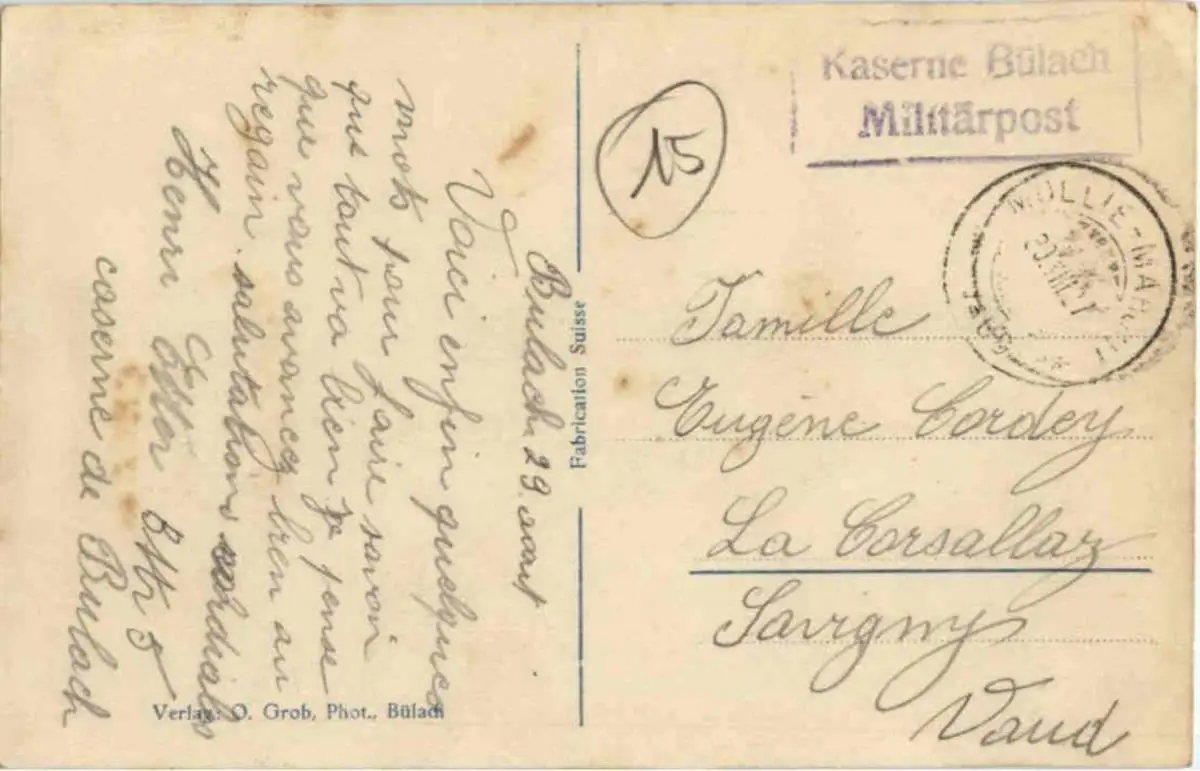 Kaserne Bülach
Militärpost
15
MOLLIE-MARGOT
Famille
Eugène Cordey
La Corsallaz
Savigny
Vaud
Fabrication Suisse
Bulach 29. aout
Voici enfin quelques
mots pour faire savoir
que tout va bien je pense
que vous avancez bien au
regain. salutations cordiales
Henri
caserne de Bulach
Verlag: O. Grob, Phot., Bülach